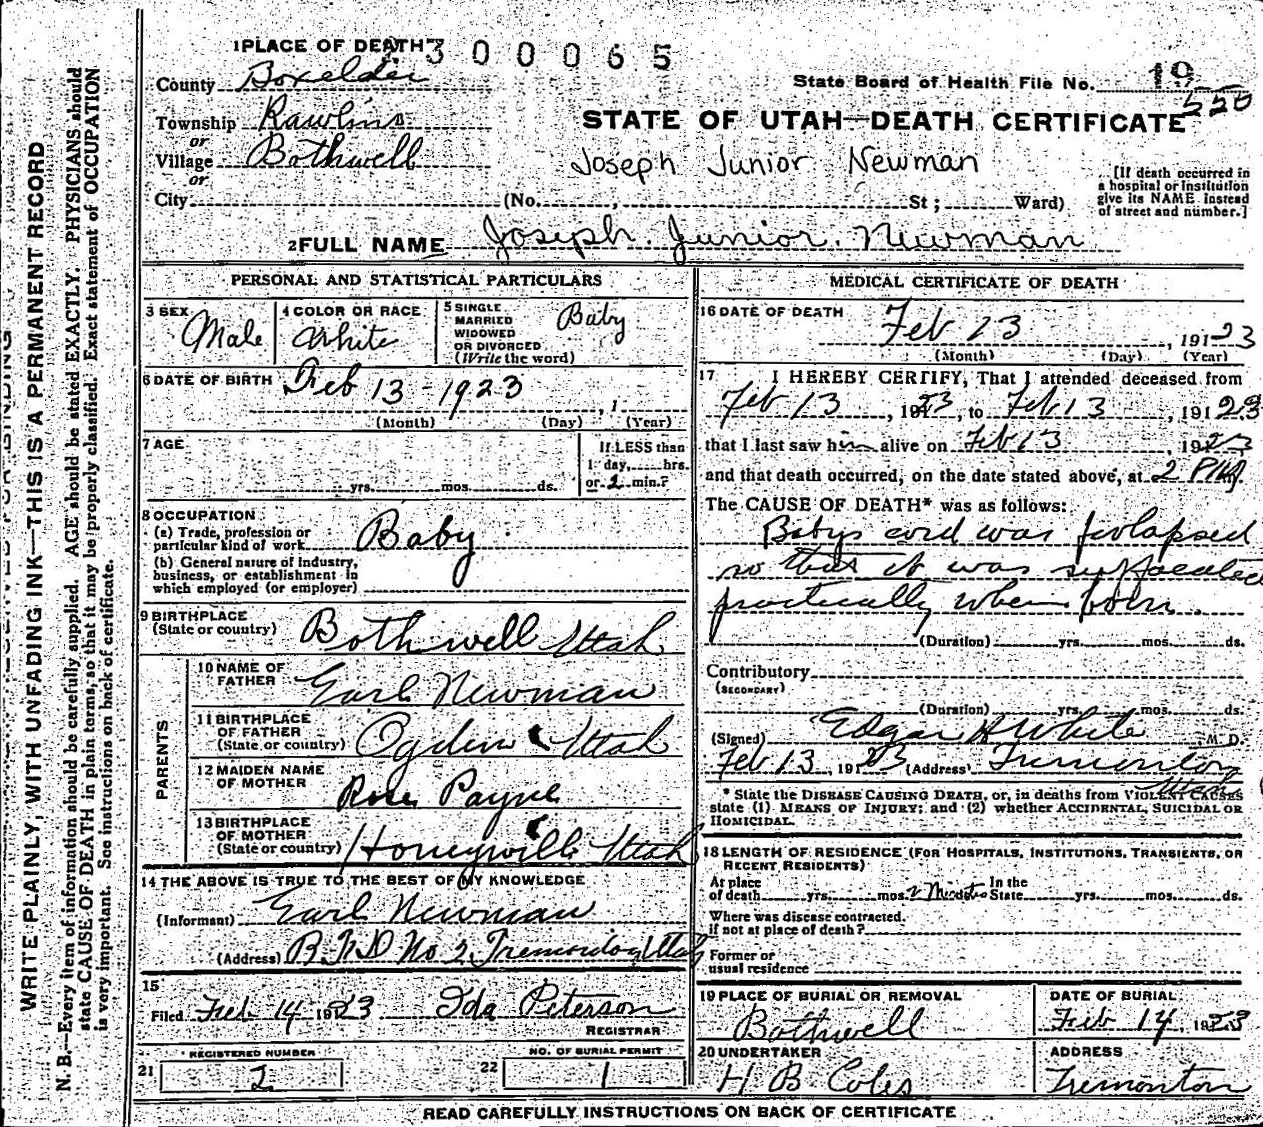 1 PLACE OF DEATH 2300065
County Boxelder
State Board of Health File No. 19
550
Township Rawlins
or
Village Bothwell
or
City (No. , St; Ward)
STATE OF UTAH—DEATH CERTIFICATE
Joseph Junior Newman
[If death occurred in
a hospital or institution
give its NAME instead
of street and number.]
2 FULL NAME Joseph Junior Newman
PERSONAL AND STATISTICAL PARTICULARS
3 SEX Male
4 COLOR OR RACE White
5 SINGLE
MARRIED
WIDOWED
OR DIVORCED
(Write the word) Baby
6 DATE OF BIRTH Feb 13 - 1923
, 1
(Month) (Day) (Year)
7 AGE
yrs. mos. ds.
If LESS than
1 day, hrs.
or 2 min.?
8 OCCUPATION
(a) Trade, profession or
particular kind of work Baby
(b) General nature of industry,
business, or establishment in
which employed (or employer)
9 BIRTHPLACE
(State or country) Bothwell Utah
PARENTS
10 NAME OF
FATHER Earl Newman
11 BIRTHPLACE
OF FATHER
(State or country) Ogden Utah
12 MAIDEN NAME
OF MOTHER Rose Payne
13 BIRTHPLACE
OF MOTHER
(State or country) Honeyville Utah
14 THE ABOVE IS TRUE TO THE BEST OF MY KNOWLEDGE
(Informant) Earl Newman
(Address) R.F.D No 2 Tremonton Utah
15
Filed Feb 14 1923 Ida Peterson
REGISTRAR
REGISTERED NUMBER
21 2
NO. OF BURIAL PERMIT
22 1
MEDICAL CERTIFICATE OF DEATH
16 DATE OF DEATH
Feb 13, 19123
(Month) (Day) (Year)
17 I HEREBY CERTIFY, That I attended deceased from
Feb 13, 1923, to Feb 13, 19123
that I last saw him alive on Feb 13 1923
and that death occurred, on the date stated above, at 2 P.M.
The CAUSE OF DEATH* was as follows:
Babys cord was prolapsed
so that it was suffocated
practically when born.
(Duration) yrs. mos. ds.
Contributory
(SECONDARY)
(Duration) yrs. mos. ds.
(Signed) Edgar H White, M. D.
Feb 13, 1923 (Address) Tremonton
Utah
* State the DISEASE CAUSING DEATH, or, in deaths from VIOLENT CAUSES
state (1) MEANS OF INJURY; and (2) whether ACCIDENTAL, SUICIDAL OR
HOMICIDAL.
18 LENGTH OF RESIDENCE (FOR HOSPITALS, INSTITUTIONS, TRANSIENTS, OR
RECENT RESIDENTS)
At place
of death yrs. mos. 2 Minutes In the
State yrs. mos. ds.
Where was disease contracted.
if not at place of death?
Former or
usual residence
19 PLACE OF BURIAL OR REMOVAL
Bothwell
DATE OF BURIAL
Feb 14, 1923
20 UNDERTAKER
H B Coles
ADDRESS
Tremonton
READ CAREFULLY INSTRUCTIONS ON BACK OF CERTIFICATE
WRITE PLAINLY, WITH UNFADING INK—THIS IS A PERMANENT RECORD
N. B.—Every item of information should be carefully supplied. AGE should be stated EXACTLY. PHYSICIANS should
state CAUSE OF DEATH in plain terms, so that it may be properly classified. Exact statement of OCCUPATION
is very important. See instructions on back of certificate.